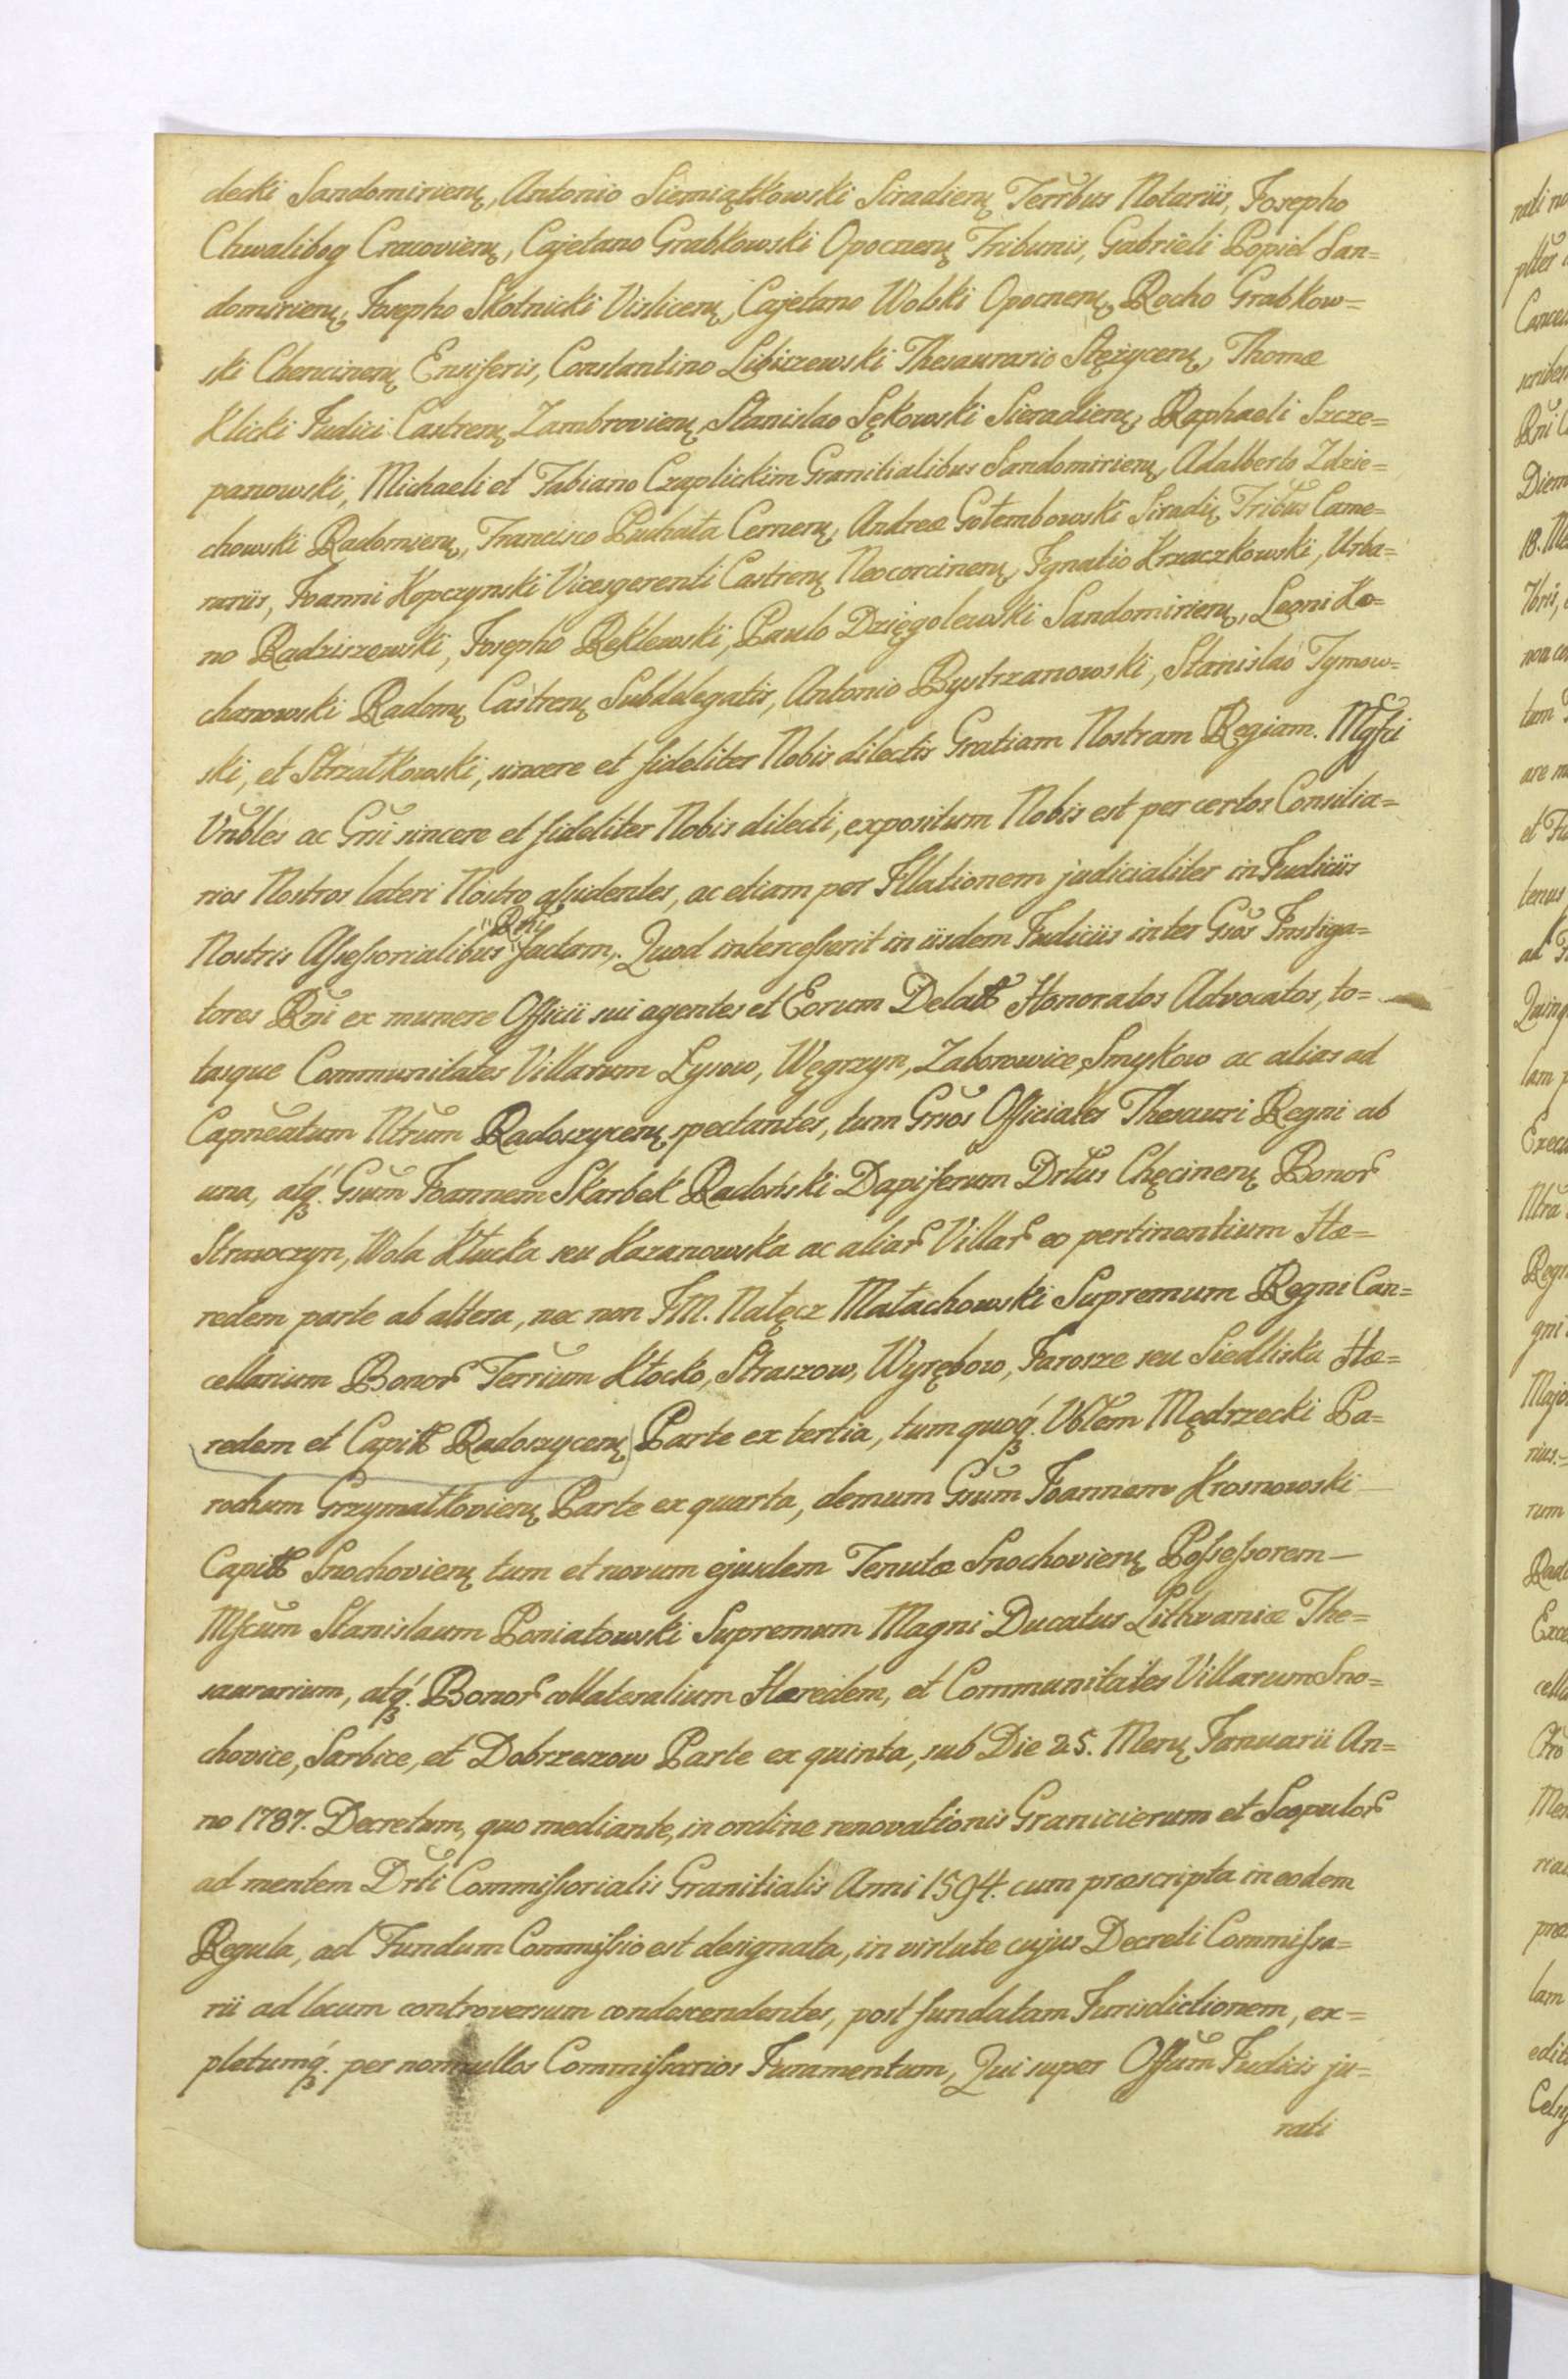 decki Sandomirienȝ, Antonio Siemiątkowski Siradienȝ Terrbus Notariis, Josepho
Chwalibog Cracovienȝ, Cajetano Grabkowski Opocnenȝ Tribunis, Gabrieli Popiel San=
domirienȝ, Josepho Skotnicki Vislicenȝ, Cajetano Wolski Opocnenȝ, Rocho Grabkow=
ski Chencinenȝ Ensiferis, Constantino Libiszewski Thesaurario Stężycenȝ, Thomæ
Klicki Judici Castrenȝ Zambrovienȝ, Stanislao Sękowski Sieradienȝ, Raphaeli Szcze=
panowski, Michaeli et Fabiano Czaplickim Granitialibus Sandomirienȝ, Adalberto Zdzie=
chowski Radomienȝ, Francisco Puchała Cernenȝ, Andreæ Gołembowski Siradiȝ Tribus Came=
rariis, Joanni Kopczynski Vicesgerenti Castrenȝ Neocorcinenȝ, Ignatio Krzaczkowski, Urba=
no Radziszewski, Josepho Reklewski, Paulo Dzięgolewski Sandomirienȝ, Leoni Ko=
chanowski Radomȝ Castrenȝ Subdelegatis, Antonio Bystrzanowski, Stanislao Tymow=
ski, et Strzałkowski, sincere et fideliter Nobis dilectis Gratiam Nostram Regiam. Mgfci
Vrubles ac Grsi sincere et fideliter Nobis dilecti, expositum Nobis est per certos Consilia=
rios Nostros lateri Nostro assidentes, ac etiam per Illationem judicialiter in Judiciis
Nostris Assessorialibus "Rni" factam, Quod intercesserit in iisdem Judiciis inter Grsos Instiga=
tores Rni ex munere Officii sui agentes et Eorum Delatt Honoratos Advocatos, to=
tasque Communitates Villarum Łysow, Węgrzyn, Zaborowice, Smykow ac alias ad
Capneatum Ntrum Radoszycenȝ spectantes, tum Grsos Officiales Thesauri Regni ab
una, atqȝ. Gsum Joannem Skarbek Radoński Dapiferum Drtus Chęcinenȝ Bonor
Strasoczyn, Wola Kłucka seu Kazanowska ac aliar Villar eo pertinentium Hæ=
redem parte ab altera, nec non JM. Nałęcz Małachowski Supremum Regni Can=
cellarium Bonor Terrium Kłocko, Straszow, Wyrębow, Jarosze seu Siedliska Hæ=
redem et Capitt Radoszycenȝ Parte ex tertia, tum quoqȝ. Vblem Mędrzecki Pa=
rochum Grzymałkovienȝ Parte ex quarta, demum Gsum Joannem Krosnowski
Capitt Snochovienȝ tum et novum ejusdem Tenutæ Snochovienȝ Possessorem—
Mfcum Stanislaum Poniatowski Supremum Magni Ducatus Lithvaniæ The=
saurarium, atqȝ. Bonor collateralium Hæredem, et Communitates Villarum Sno=
chovice, Sarbice, et Dobrzeszow Parte ex quinta, sub Die 25. Mensȝ Januarii An=
no 1787. Decretum, quo mediante, in ordine renovationis Granicierum et Scopulor
ad mentem Drti Commissorialis Granitialis Anni 1594. cum præscripta in eodem
Regula, ad Fundum Commissio est designata, in virtute cujus Decreti Commissa=
rii ad locum controversum condescendentes, post fundatam Jurisdictionem, ex=
pletumqȝ. per nonnullos Commissarios Juramentum, Qui super Offum Judicis ju=
rati